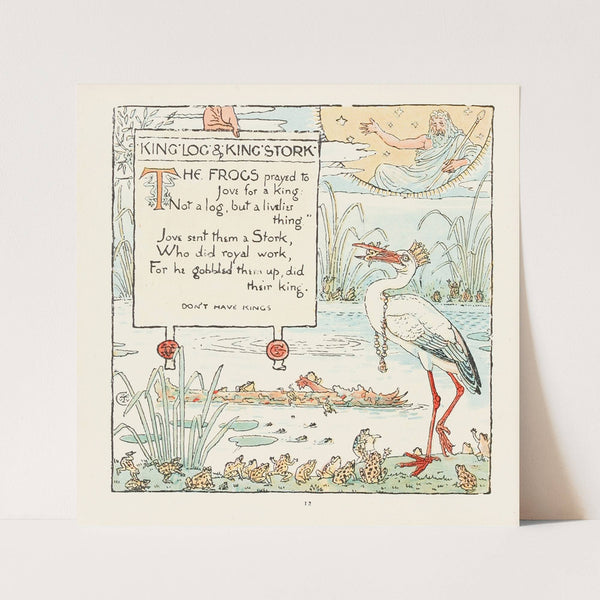 KING LOG & KING STORK.
THE FROGS prayed to
Jove for a king:
"Not a log, but a livelier
thing."
Jove sent them a Stork,
Who did royal work,
For he gobbled them up, did
their king.
DON'T HAVE KINGS
12